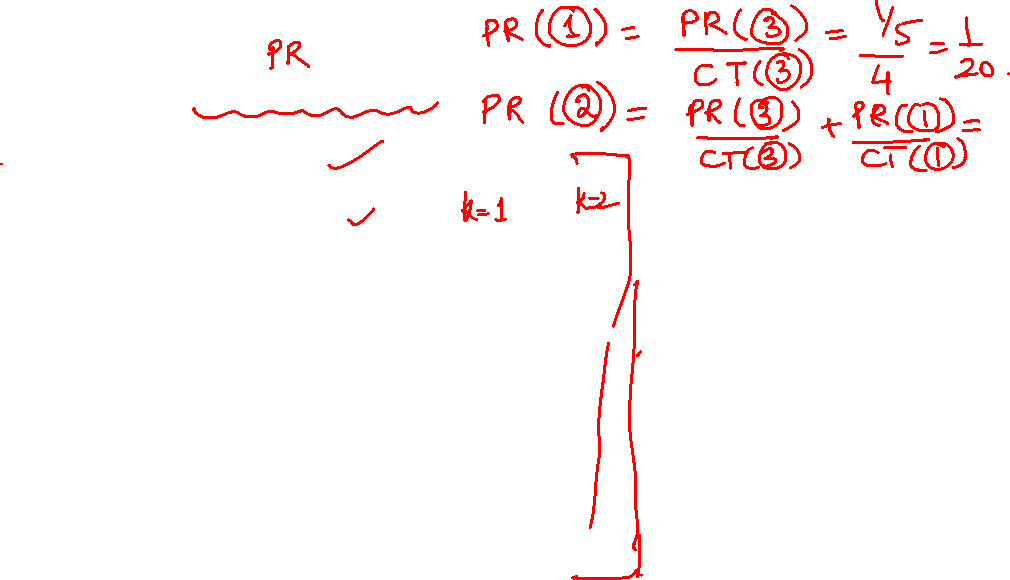 PR
PR(①) = PR(③) / CT(③) = 1/5 / 4 = 1/20.
PR(②) = PR(③) / CT(③) + PR(①) / CT(①) =
k=1 k=2